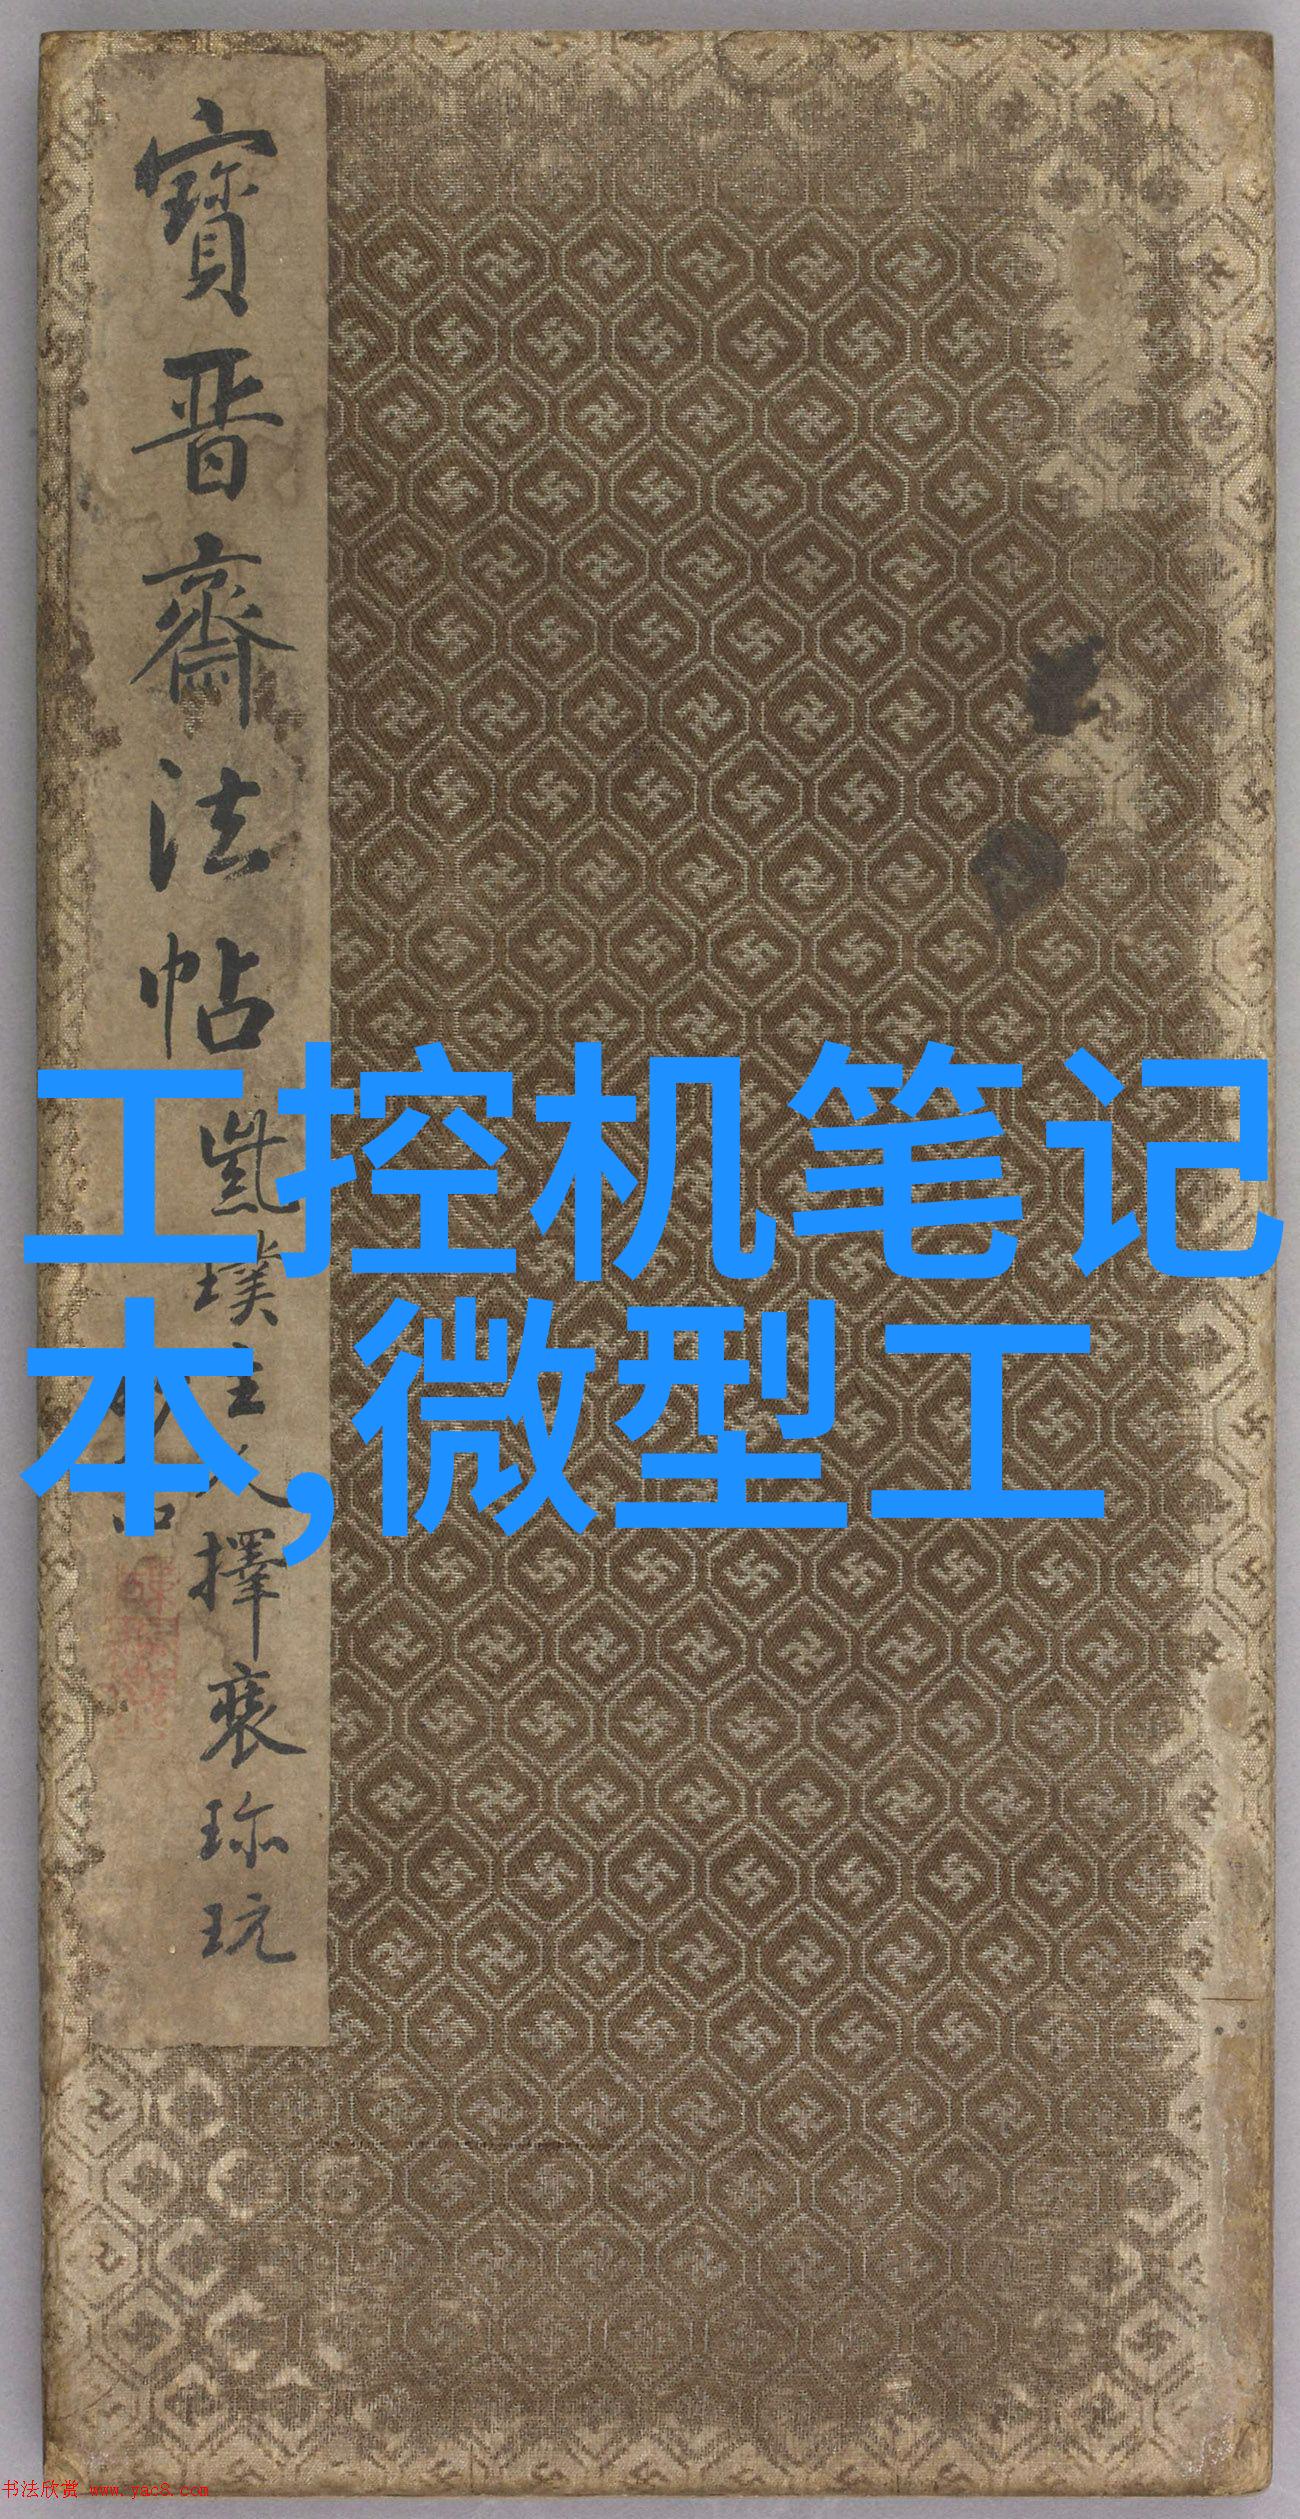 寶晋齋法帖
戴璞主人擇裘珎玩
工控机笔记
本,微型工
书法欣赏 www.yac8.com